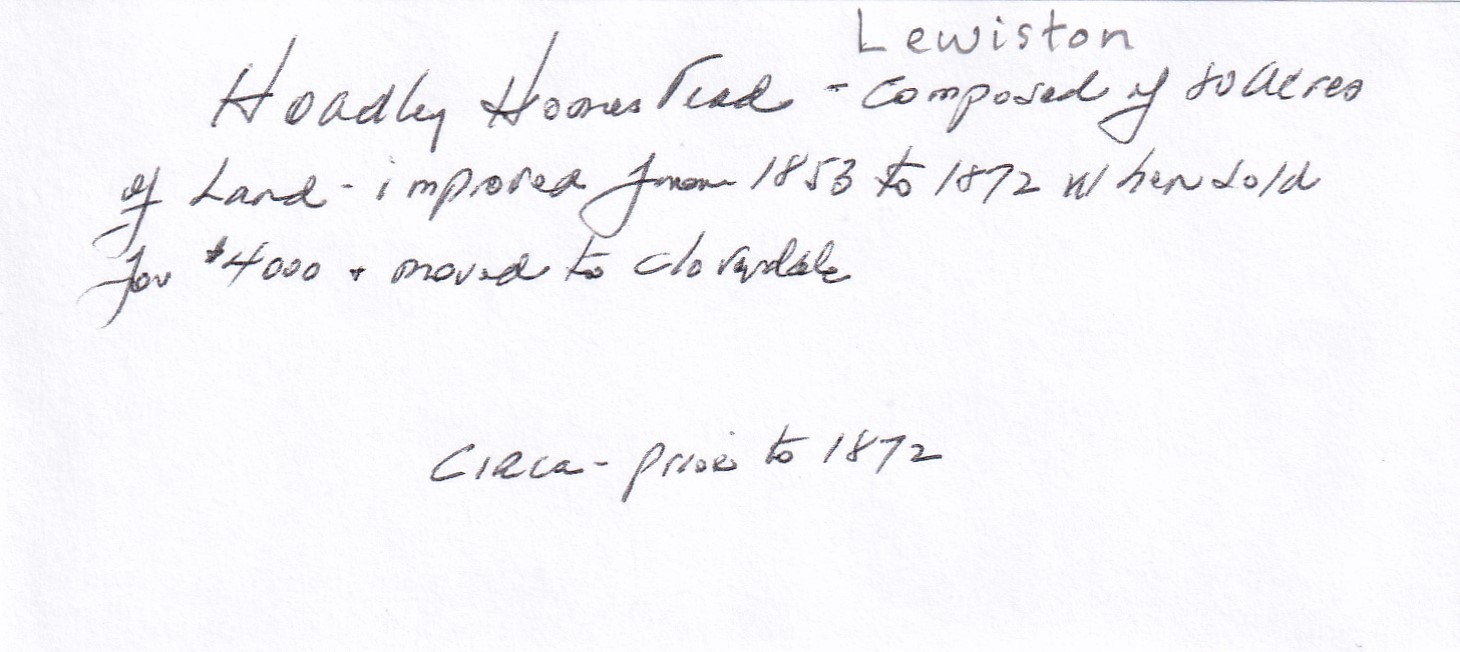 Lewiston
Hoadley Homestead - Composed of 80 Acres
of Land - improved from 1853 to 1872 when sold
for $4000 + moved to Cloverdale
Circa - prior to 1872